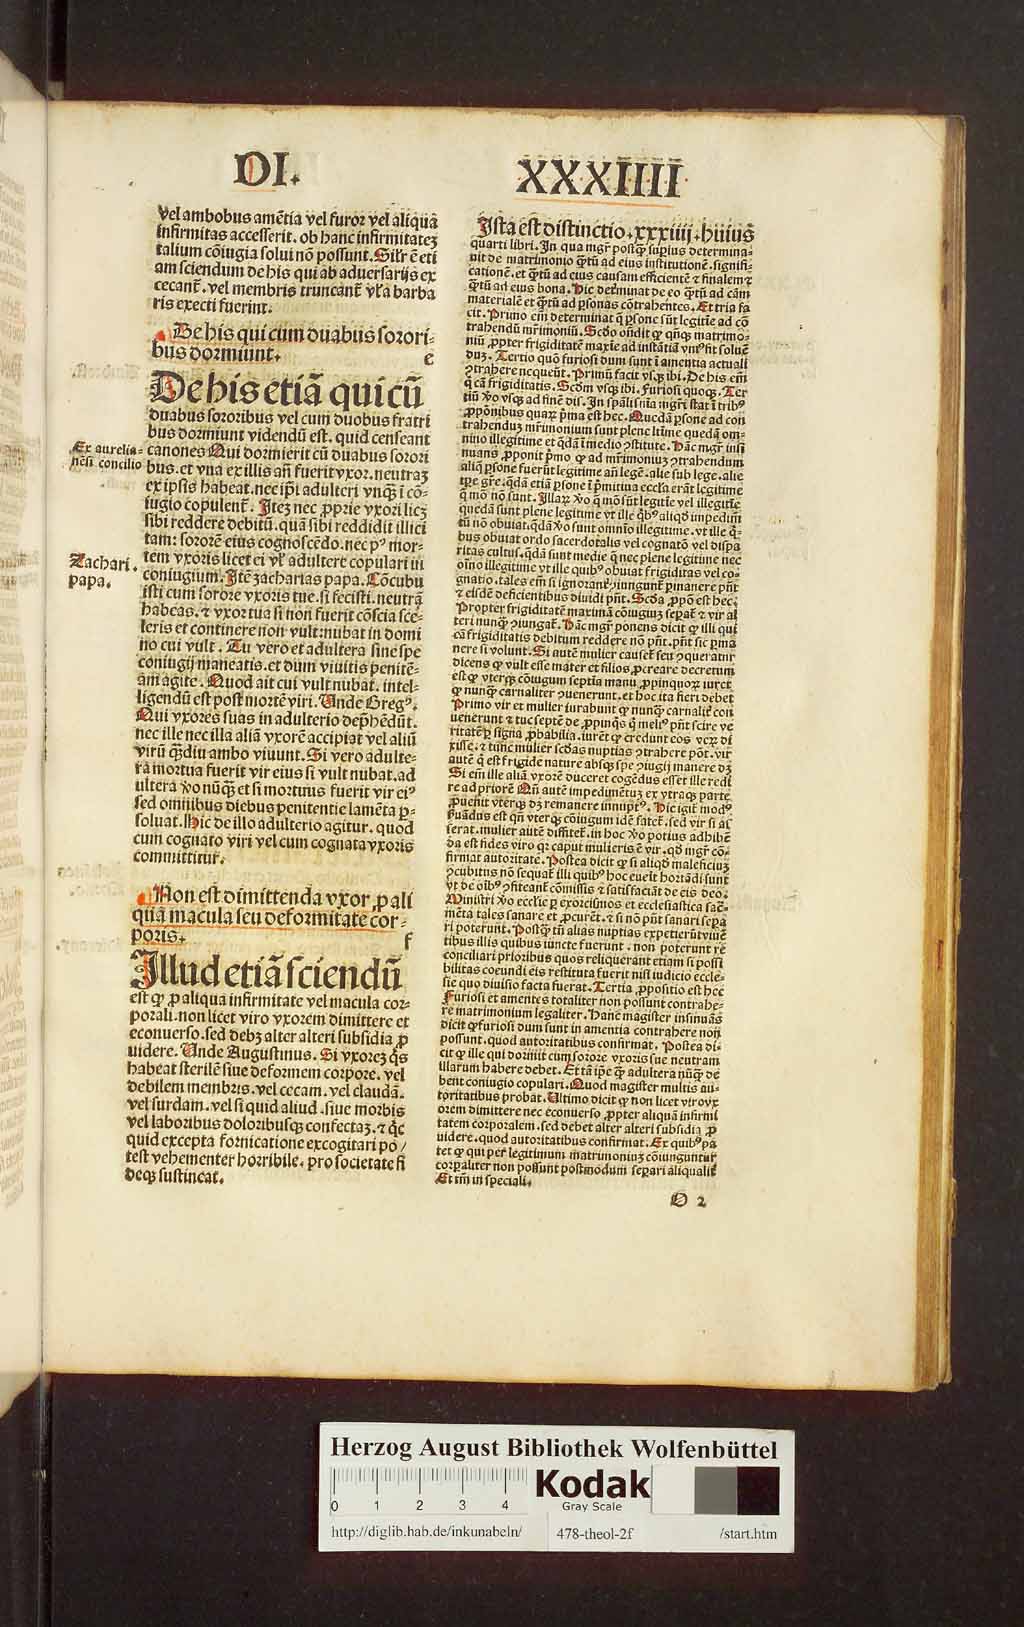 DI. XXXIIII
vel ambobus amẽtia vel furor vel aliquã
infirmitas accesserit. ob hanc infirmitatez
talium cõiugia solui nõ possunt. Silr̃ ẽ eti
am sciendum de his qui ab aduersarijs ex
cecant᷑. vel membris truncant᷑ vl̓ a barba
ris execti fuerint.
De his qui cum duabus sorori-
bus dormiunt. e
De his etiã qui cũ
duabus sororibus vel cum duobus fratri
bus dormiunt videndũ est. quid censeant
Ex aurelia-
nẽsi concilio
canones Qui dormierit cũ duabus sorori
bus. et vna ex illis añ fuerit vxor. neutraz
ex ipsis habeat. nec ip̃i adulteri vnq̃ȝ ĩ cõ-
iugio copulent᷑. Itez nec ꝓprie vxori licȝ
sibi reddere debitũ. quã sibi reddidit illici
tam: sororẽ eius cognoscẽdo. nec pꝰ mor-
tem vxoris licet ei vl̓ adultere copulari ĩ
Zachari.
papa.
coniugium. Itẽ zacharias papa. Cõcubu
isti cum sorore vxoris tue. si fecisti. neutrã
habeas. ⁊ vxor tua si non fuerit cõscia sce-
leris et continere non vult: nubat in domi
no cui vult. Tu vero et adultera sine spe
coniugij maneatis. et dum viuitis penitẽ-
am agite. Quod ait cui vult nubat. intel-
ligendũ est post mortẽ viri. Unde Gregꝰ.
Qui vxores suas in adulterio dep̃hẽdũt.
nec ille nec illa aliã vxorẽ accipiat vel aliũ
virũ q̃ȝdiu ambo viuunt. Si vero adulte-
ra mortua fuerit vir eius si vult nubat. ad
ultera v̊o nũq̃ȝ et si mortuus fuerit vir eiꝰ
sed omnibus diebus penitentie lamẽta ꝑ-
soluat. Hic de illo adulterio agitur. quod
cum cognato viri vel cum cognata vxoris
committitur.
Non est dimittenda vxor ꝓ ali
quã macula seu deformitate cor-
poris. f
Illud etiã sciendũ
est ꝙ ꝓ aliqua infirmitate vel macula cor-
porali. non licet viro vxorem dimittere et
econuerso. sed debȝ alter alteri subsidia ꝓ
uidere. Unde Augustinus. Si vxorez q̃s
habeat sterilẽ siue deformem corpore. vel
debilem membris. vel cecam. vel claudã.
vel surdam. vel si quid aliud. siue morbis
vel laboribus doloribusqȝ confectaȝ. ⁊ q̇c
quid excepta fornicatione excogitari po/
test vehementer horribile. pro societate fi
deqȝ sustineat.
Ista est distinctio .xxxiiij. huiusꝰ
quarti libri. In qua mgr̃ postq̃ȝ superius determina-
uit de matrimonio q̃tũ ad eius institutionẽ. signifi-
cationẽ. et q̃tũ ad eius causam efficientẽ ⁊ finalem ⁊
q̃tũ ad eius bona. Hic determinat de eo q̃tũ ad cãm
materialẽ et q̃tũ ad ꝑsonas cõtrahentes. Et tria fa
cit. Primo em̃ determinat q̃ ꝑsone sũt legitie ad cõ
trahendũ mr̃imoniũ. Scðo oñdit ꝙ q̃ȝuis matrimo-
niũ ꝓpter frigiditatẽ maxie ad instãtiã vniꝰ fit soluẽ
duȝ. Tertio quõ furiosi dum sunt ĩ amentia actuali
ꝯtrahere nequeñt. Primũ facit vsqȝ ibi. De his em̃
q̃ cã frigiditatis. Scðm vsqȝ ibi. Furiosi quoqȝ. Ter
tiũ v̊o vsqȝ ad finẽ dis. In sp̃ali s̃nia mgr̃i stat ĩ tribꝰ
ꝓpõnibus quaꝝ p̃ma est hec. Quedã ꝑsone ad con
trahenduȝ mr̃imonium sunt plene legitie quedã om-
nino illegitime et q̃dã ĩ medio ꝯstitute. Hãc mgr̃ insi
nuans ꝓponit p̃mo ꝙ ad mr̃imoniuȝ ꝯtrahendum
aliq̃ ꝑsone fuerũt legitime añ legẽ. alie sub lege. alie
tp̃e gr̃e: q̃dã etiã ꝑsone ĩ p̃mitiua ecclia erãt legitime
q̃ mõ nõ sunt. Illaꝝ v̊o q̃ mõ sũt legitie vel illegitie
quedã sunt plene legitime vt ille q̃bꝰ aliqð impedim̃
tũ nõ obuiat. q̃dã v̊o sunt omnio illegitime. vt ille q̃-
bus obuiat ordo sacerdotalis vel cognatõ vel dispa
ritas cultus. q̃dã sunt medie q̃ nec plene legitime nec
oĩno illegitime vt ille quibꝰ obuiat frigiditas vel co-
gnatio. tales em̃ si ignorant᷑ ꝯiungunt᷑ ꝑmanere pñt
⁊ eisdẽ deficientibus diuidi pñt. Scða ꝓpõ est hec.
Propter frigiditatẽ maximã cõiugiuȝ seꝑat᷑ ⁊ vir al
teri nunq̃ȝ ꝯiungat᷑. Hãc mgr̃ ponens dicit ꝙ illi qui
cã frigiditatis debitum reddere nõ pñt. pñt sic ꝑma
nere si volunt. Si autẽ mulier causet᷑ seu ꝯqueratur
dicens ꝙ vult esse mater et filios ꝓcreare decretum
est ꝙ vterqȝ cõiugum septĩa manu ꝓpinquoꝝ iuret
ꝙ nunq̃ȝ carnaliter ꝯuenerunt. et hoc ita fieri debet
Primo vir et mulier iurabunt ꝙ nunq̃ȝ carnalit᷑ con
uenerunt ⁊ tuc septẽ de ꝓpinq̃s q̃ meliꝰ pñt scire ve
ritatẽ ꝑ signa ꝓbabilia. iurẽt ꝙ credunt eos veꝝ di
xisse. ⁊ tunc mulier scðas nuptias ꝯtrahere põt. vir
autẽ q̃ est frigide nature absqȝ spe ꝯiugij manere dȝ
Si em̃ ille aliã vxorẽ duceret cogẽdus esset ille redi
re ad priorẽ Qñ autẽ impedimẽtuȝ ex vtraqȝ parte
ꝓuenit vterqȝ dȝ remanere innuptꝰ. Hic igit᷑ modꝰ
ẜuãdus est qñ vterqȝ cõiugum idẽ fatet᷑. sed vir si as
serat. mulier autẽ diffitet᷑. in hoc v̊o potius adhibẽ
da est fides viro qꝛ caput mulieris ẽ vir. qð mgr̃ cõ-
firmat autoritate. Postea dicit ꝙ si aliqð maleficiuȝ
ꝯcubitus nõ sequat᷑ illi quibꝰ hoc eueĩt hortãdi sunt
vt de oĩbꝰ ꝯfiteant᷑ cõmissis ⁊ satisfaciãt de eis deo.
Ministri v̊o ecclie ꝑ exorcismos et ecclesiastica sac̃-
mẽta tales sanare et ꝓcurẽt. ⁊ si nõ pñt sanari seꝑa
ri poterunt. Postq̃ȝ tñ alias nuptias expetierũt viuẽ
tibus illis quibus iuncte fuerunt. non poterunt re
conciliari prioribus quos reliquerant etiam si possi
bilitas coeundi eis restituta fuerit nisi iudicio eccle-
sie quo diuisio facta fuerat. Tertia ꝓpositio est hec
Furiosi et amentes totaliter non possunt contrahe-
re matrimonium legaliter. Hanc magister insinuãs
dicit ꝙ furiosi dum sunt in amentia contrahere non
possunt. quod autoritatibus confirmat. Postea di-
cit ꝙ ille qui dormit cum sorore vxoris sue neutram
illarum habere debet. Et tã ip̃e q̃ȝ adultera nũq̃ȝ de
bent coniugio copulari. Quod magister multis au-
toritatibus probat. Ultimo dicit ꝙ non licet viro vx
orem dimittere nec econuerso ꝓpter aliquã infirmi
tatem corporalem. sed debet alter alteri subsidia ꝓ
uidere. quod autoritatibus confirmat. Ex quibꝰ pa
tet ꝙ qui per legitimum matrimoniuȝ cõiunguntur
corꝑaliter non possunt postmodum seꝑari aliqualit᷑
Et tm̃ in speciali.
O 2
Herzog August Bibliothek Wolfenbüttel
0 1 2 3 4
Kodak
Gray Scale
http://diglib.hab.de/inkunabeln/ 478-theol-2f /start.htm